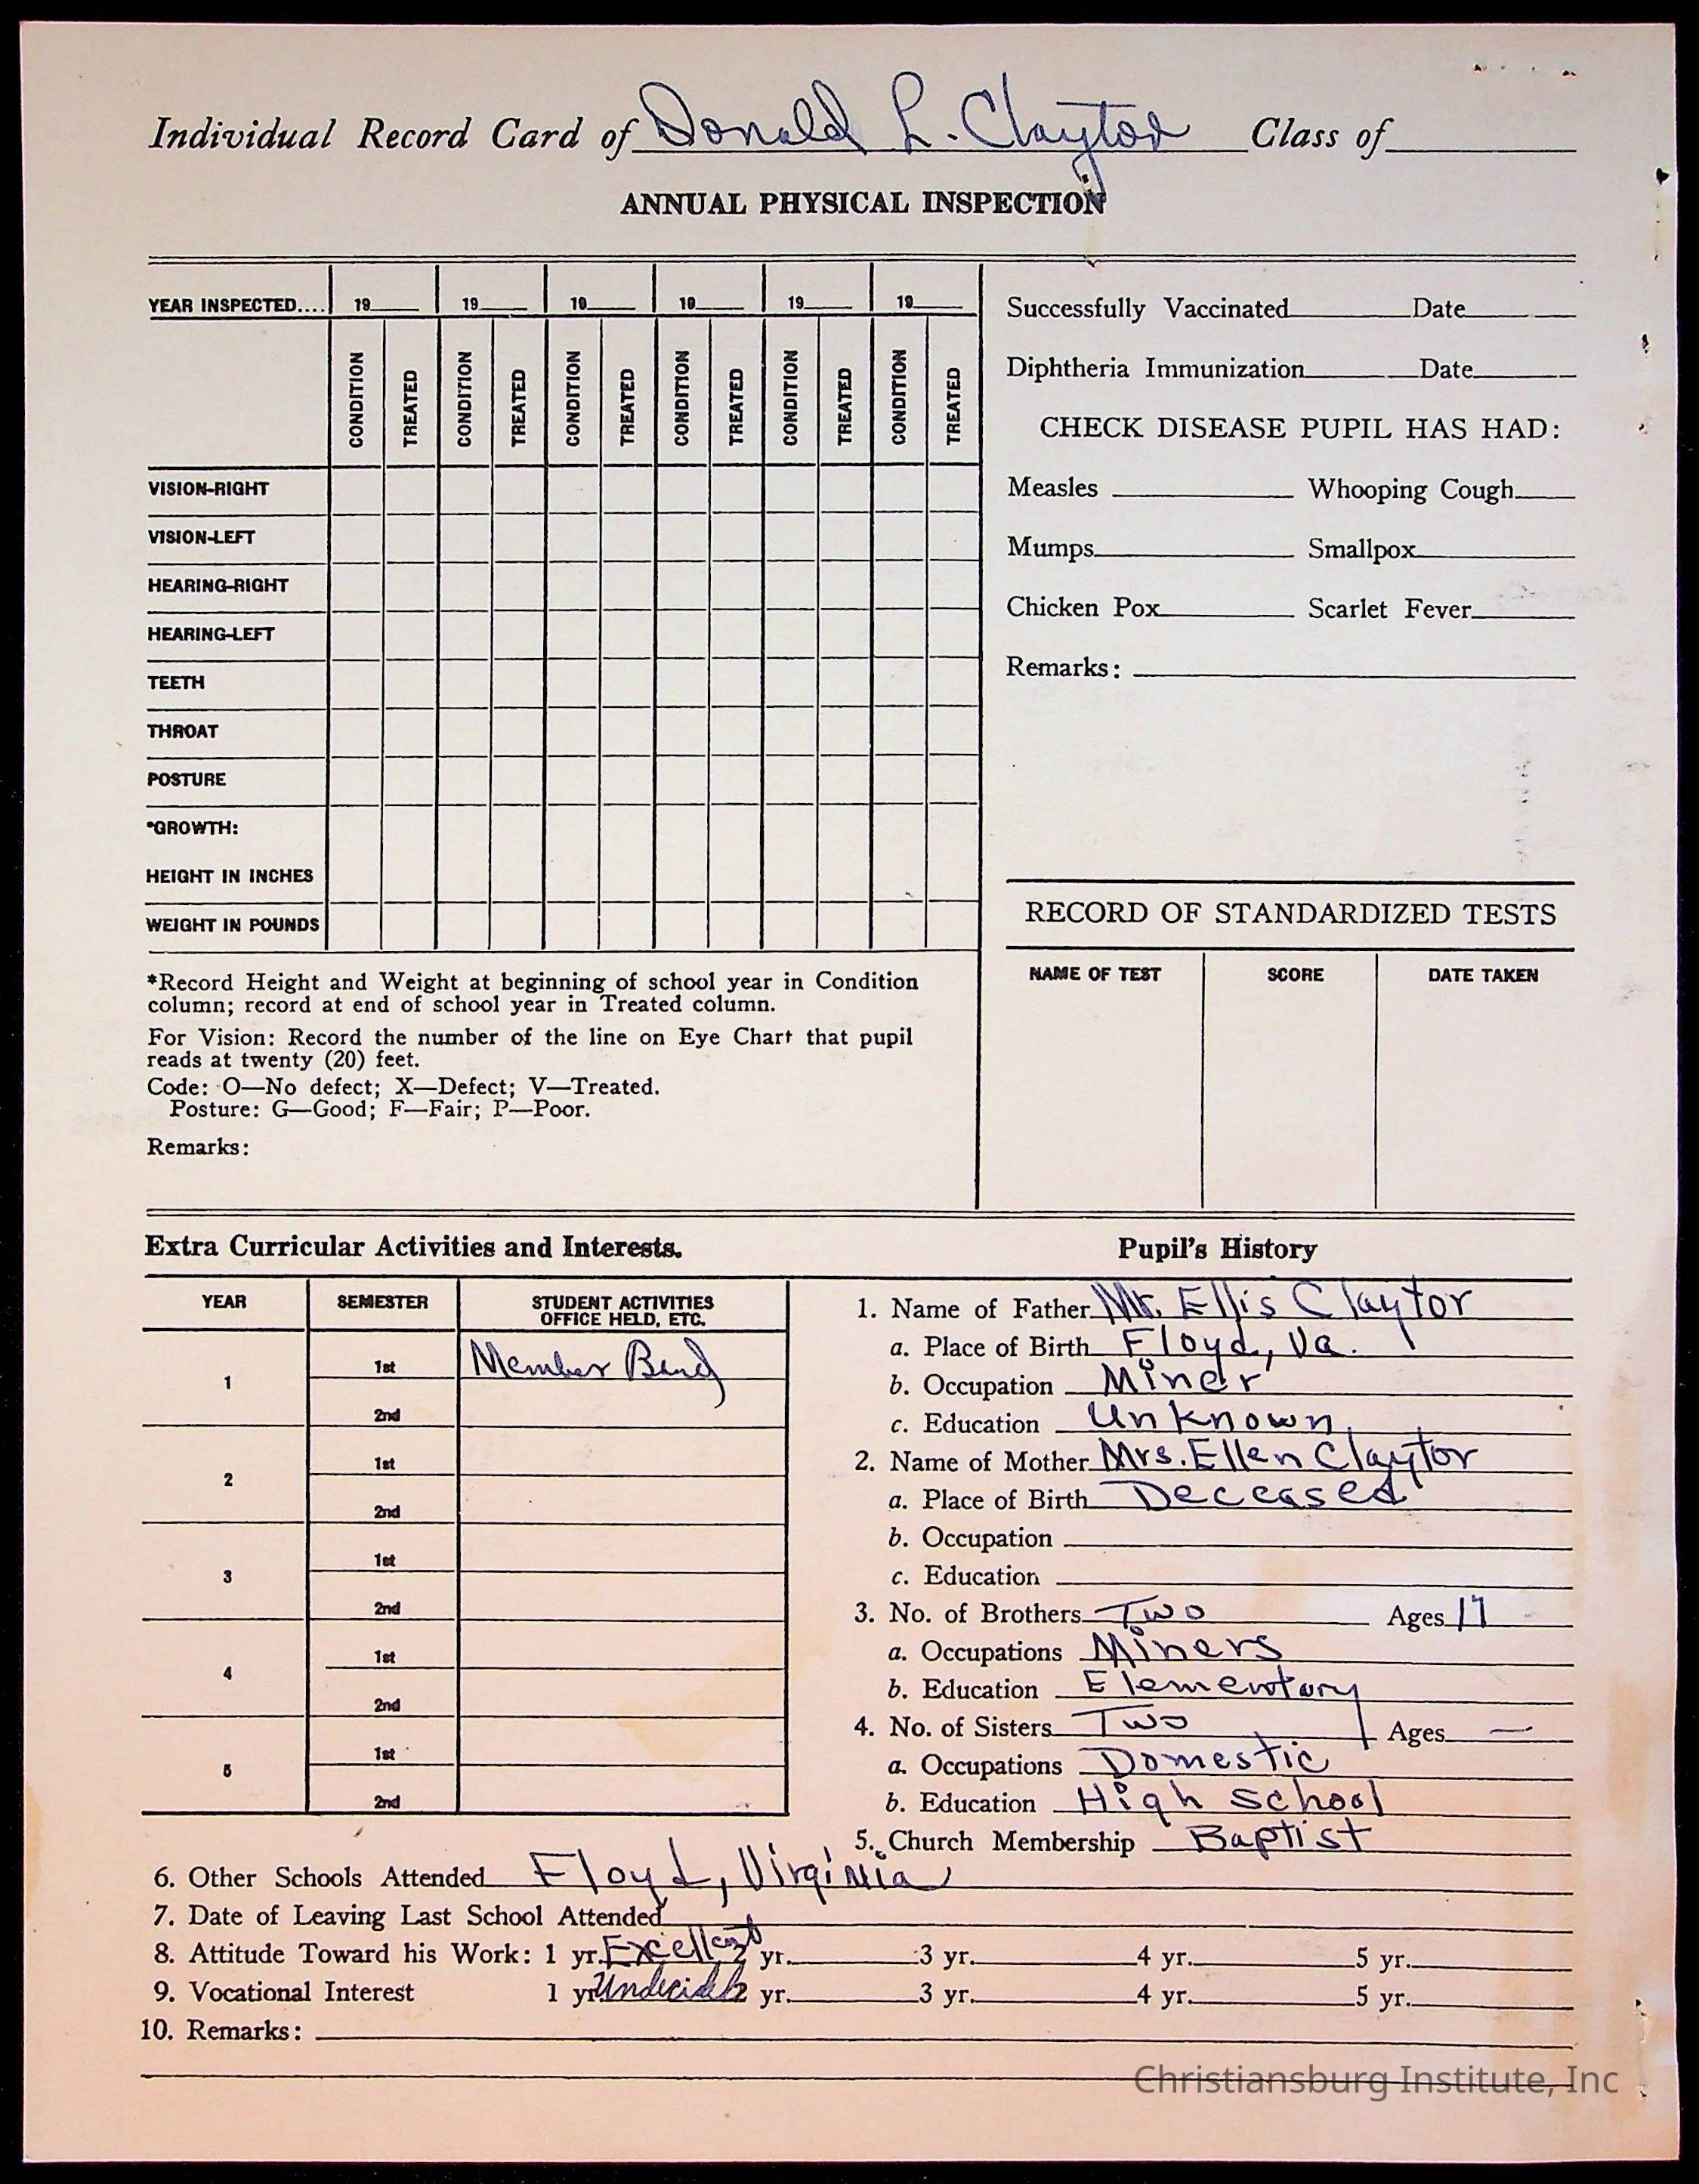 Individual Record Card of Donald L. Claytor Class of
ANNUAL PHYSICAL INSPECTION
YEAR INSPECTED.... 19 19 19 19 19 19
CONDITION TREATED CONDITION TREATED CONDITION TREATED CONDITION TREATED CONDITION TREATED CONDITION TREATED
VISION-RIGHT
VISION-LEFT
HEARING-RIGHT
HEARING-LEFT
TEETH
THROAT
POSTURE
*GROWTH:
HEIGHT IN INCHES
WEIGHT IN POUNDS
*Record Height and Weight at beginning of school year in Condition
column; record at end of school year in Treated column.
For Vision: Record the number of the line on Eye Chart that pupil
reads at twenty (20) feet.
Code: O—No defect; X—Defect; V—Treated.
Posture: G—Good; F—Fair; P—Poor.
Remarks:
Successfully Vaccinated Date
Diphtheria Immunization Date
CHECK DISEASE PUPIL HAS HAD:
Measles Whooping Cough
Mumps Smallpox
Chicken Pox Scarlet Fever
Remarks:
RECORD OF STANDARDIZED TESTS
NAME OF TEST SCORE DATE TAKEN
Extra Curricular Activities and Interests.
YEAR SEMESTER STUDENT ACTIVITIES
OFFICE HELD, ETC.
1 1st Member Band
2nd
2 1st
2nd
3 1st
2nd
4 1st
2nd
5 1st
2nd
Pupil's History
1. Name of Father Mr. Ellis Claytor
a. Place of Birth Floyd, Va.
b. Occupation Miner
c. Education Unknown
2. Name of Mother Mrs. Ellen Claytor
a. Place of Birth Deceased
b. Occupation
c. Education
3. No. of Brothers Two Ages 17
a. Occupations Miners
b. Education Elementary
4. No. of Sisters Two Ages —
a. Occupations Domestic
b. Education High School
5. Church Membership Baptist
6. Other Schools Attended Floyd, Virginia
7. Date of Leaving Last School Attended
8. Attitude Toward his Work: 1 yr. Excellent 2 yr. 3 yr. 4 yr. 5 yr.
9. Vocational Interest 1 yr. Undecided 2 yr. 3 yr. 4 yr. 5 yr.
10. Remarks:
Christiansburg Institute, Inc